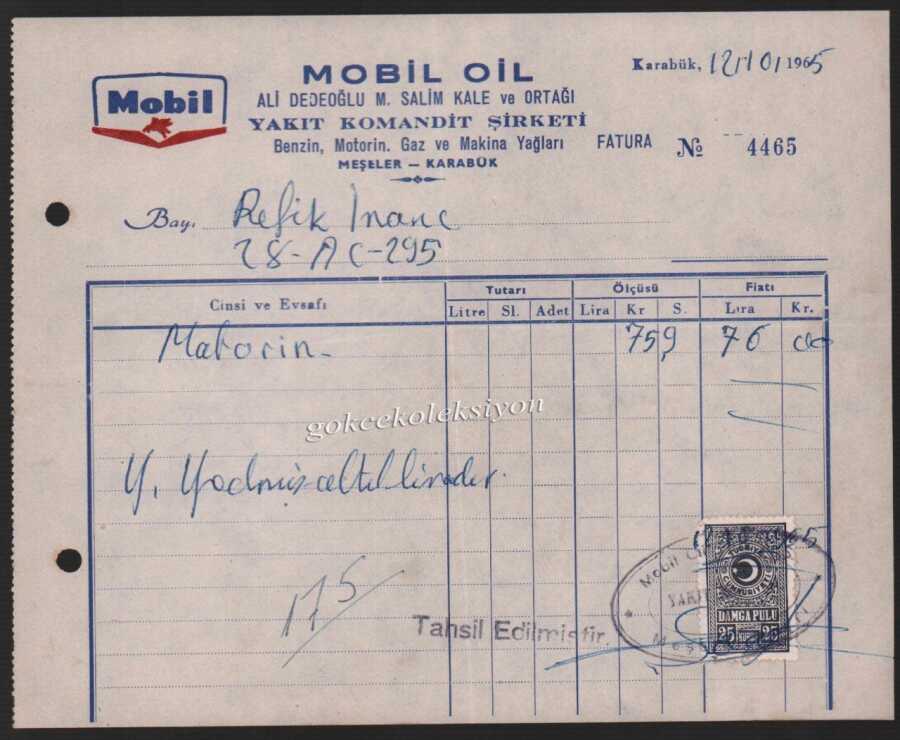 Mobil
MOBİL OİL
ALİ DEDEOĞLU M. SALİM KALE ve ORTAĞI
YAKIT KOMANDİT ŞİRKETİ
Benzin, Motorin. Gaz ve Makina Yağları
MEŞELER — KARABÜK
Karabük, 12/10/1965
FATURA № 4465
Bay. Refik İnanç
78-AC-295
Cinsi ve Evsafı Tutarı Ölçüsü Fiatı
Litre Sl. Adet Lira Kr S. Lıra Kr.
Matorin- 759 76 00
gokcekoleksiyon
Y. Yedmişaltıliradır.
175
Tahsil Edilmiştir.
Mobil
YAKIT
TÜRKİYE
CUMHURİYETİ
DAMGA PULU
25 25